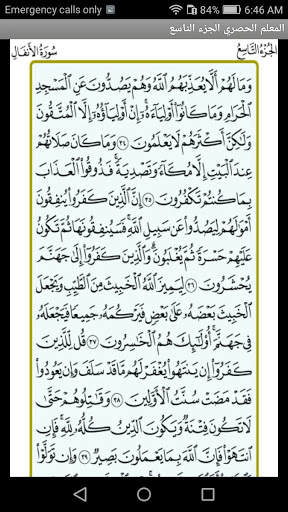 Emergency calls only
6:46 AM
المعلم الحصري الجزء التاسع
سُورَةُ الأَنفَالِ
الجُزْءُ التَّاسِعُ
وَمَا لَهُمْ أَلَّا يُعَذِّبَهُمُ ٱللَّهُ وَهُمْ يَصُدُّونَ عَنِ ٱلْمَسْجِدِ
ٱلْحَرَامِ وَمَا كَانُوٓا۟ أَوْلِيَآءَهُۥٓ إِنْ أَوْلِيَآؤُهُۥٓ إِلَّا ٱلْمُتَّقُونَ
وَلَٰكِنَّ أَكْثَرَهُمْ لَا يَعْلَمُونَ ٣٤ وَمَا كَانَ صَلَاتُهُمْ
عِندَ ٱلْبَيْتِ إِلَّا مُكَآءً وَتَصْدِيَةً فَذُوقُوا۟ ٱلْعَذَابَ
بِمَا كُنتُمْ تَكْفُرُونَ ٣٥ إِنَّ ٱلَّذِينَ كَفَرُوا۟ يُنفِقُونَ
أَمْوَٰلَهُمْ لِيَصُدُّوا۟ عَن سَبِيلِ ٱللَّهِ فَسَيُنفِقُونَهَا ثُمَّ تَكُونُ
عَلَيْهِمْ حَسْرَةً ثُمَّ يُغْلَبُونَ وَٱلَّذِينَ كَفَرُوٓا۟ إِلَىٰ جَهَنَّمَ
يُحْشَرُونَ ٣٦ لِيَمِيزَ ٱللَّهُ ٱلْخَبِيثَ مِنَ ٱلطَّيِّبِ وَيَجْعَلَ
ٱلْخَبِيثَ بَعْضَهُۥ عَلَىٰ بَعْضٍ فَيَرْكُمَهُۥ جَمِيعًا فَيَجْعَلَهُۥ
فِى جَهَنَّمَ أُو۟لَٰٓئِكَ هُمُ ٱلْخَٰسِرُونَ ٣٧ قُل لِّلَّذِينَ
كَفَرُوٓا۟ إِن يَنتَهُوا۟ يُغْفَرْ لَهُم مَّا قَدْ سَلَفَ وَإِن يَعُودُوا۟
فَقَدْ مَضَتْ سُنَّتُ ٱلْأَوَّلِينَ ٣٨ وَقَٰتِلُوهُمْ حَتَّىٰ
لَا تَكُونَ فِتْنَةٌ وَيَكُونَ ٱلدِّينُ كُلُّهُۥ لِلَّهِ فَإِنِ
ٱنتَهَوْا۟ فَإِنَّ ٱللَّهَ بِمَا يَعْمَلُونَ بَصِيرٌ ٣٩ وَإِن تَوَلَّوْا۟